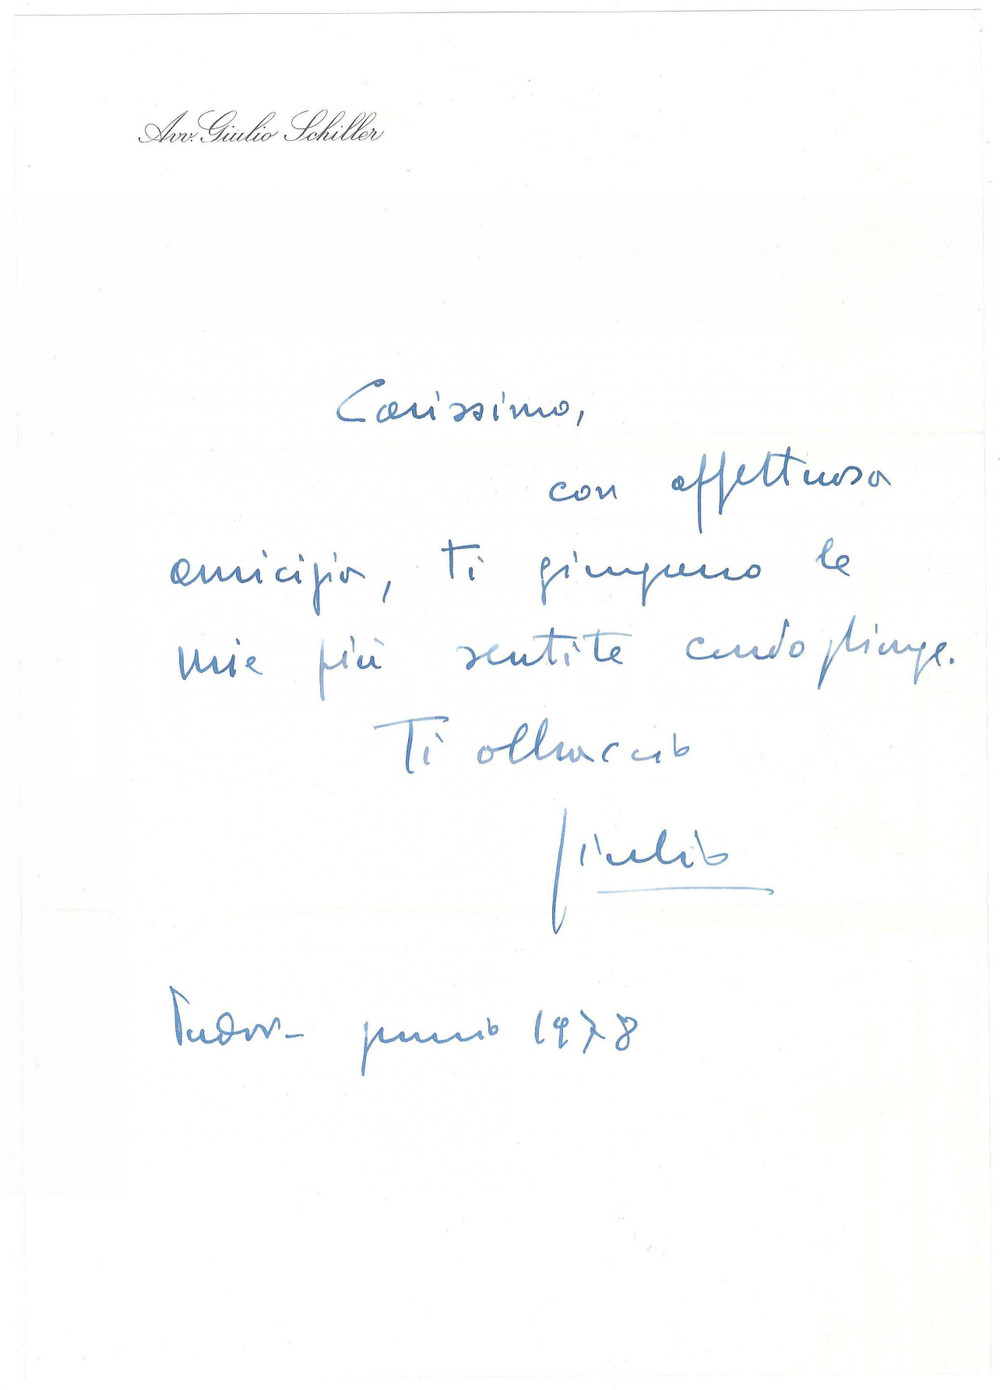 Avv. Giulio Schiller
Carissimo,
con affettuosa
amicizia, ti giungano le
mie più sentite condoglianze.
Ti abbraccio
Giulio
giugno 1978